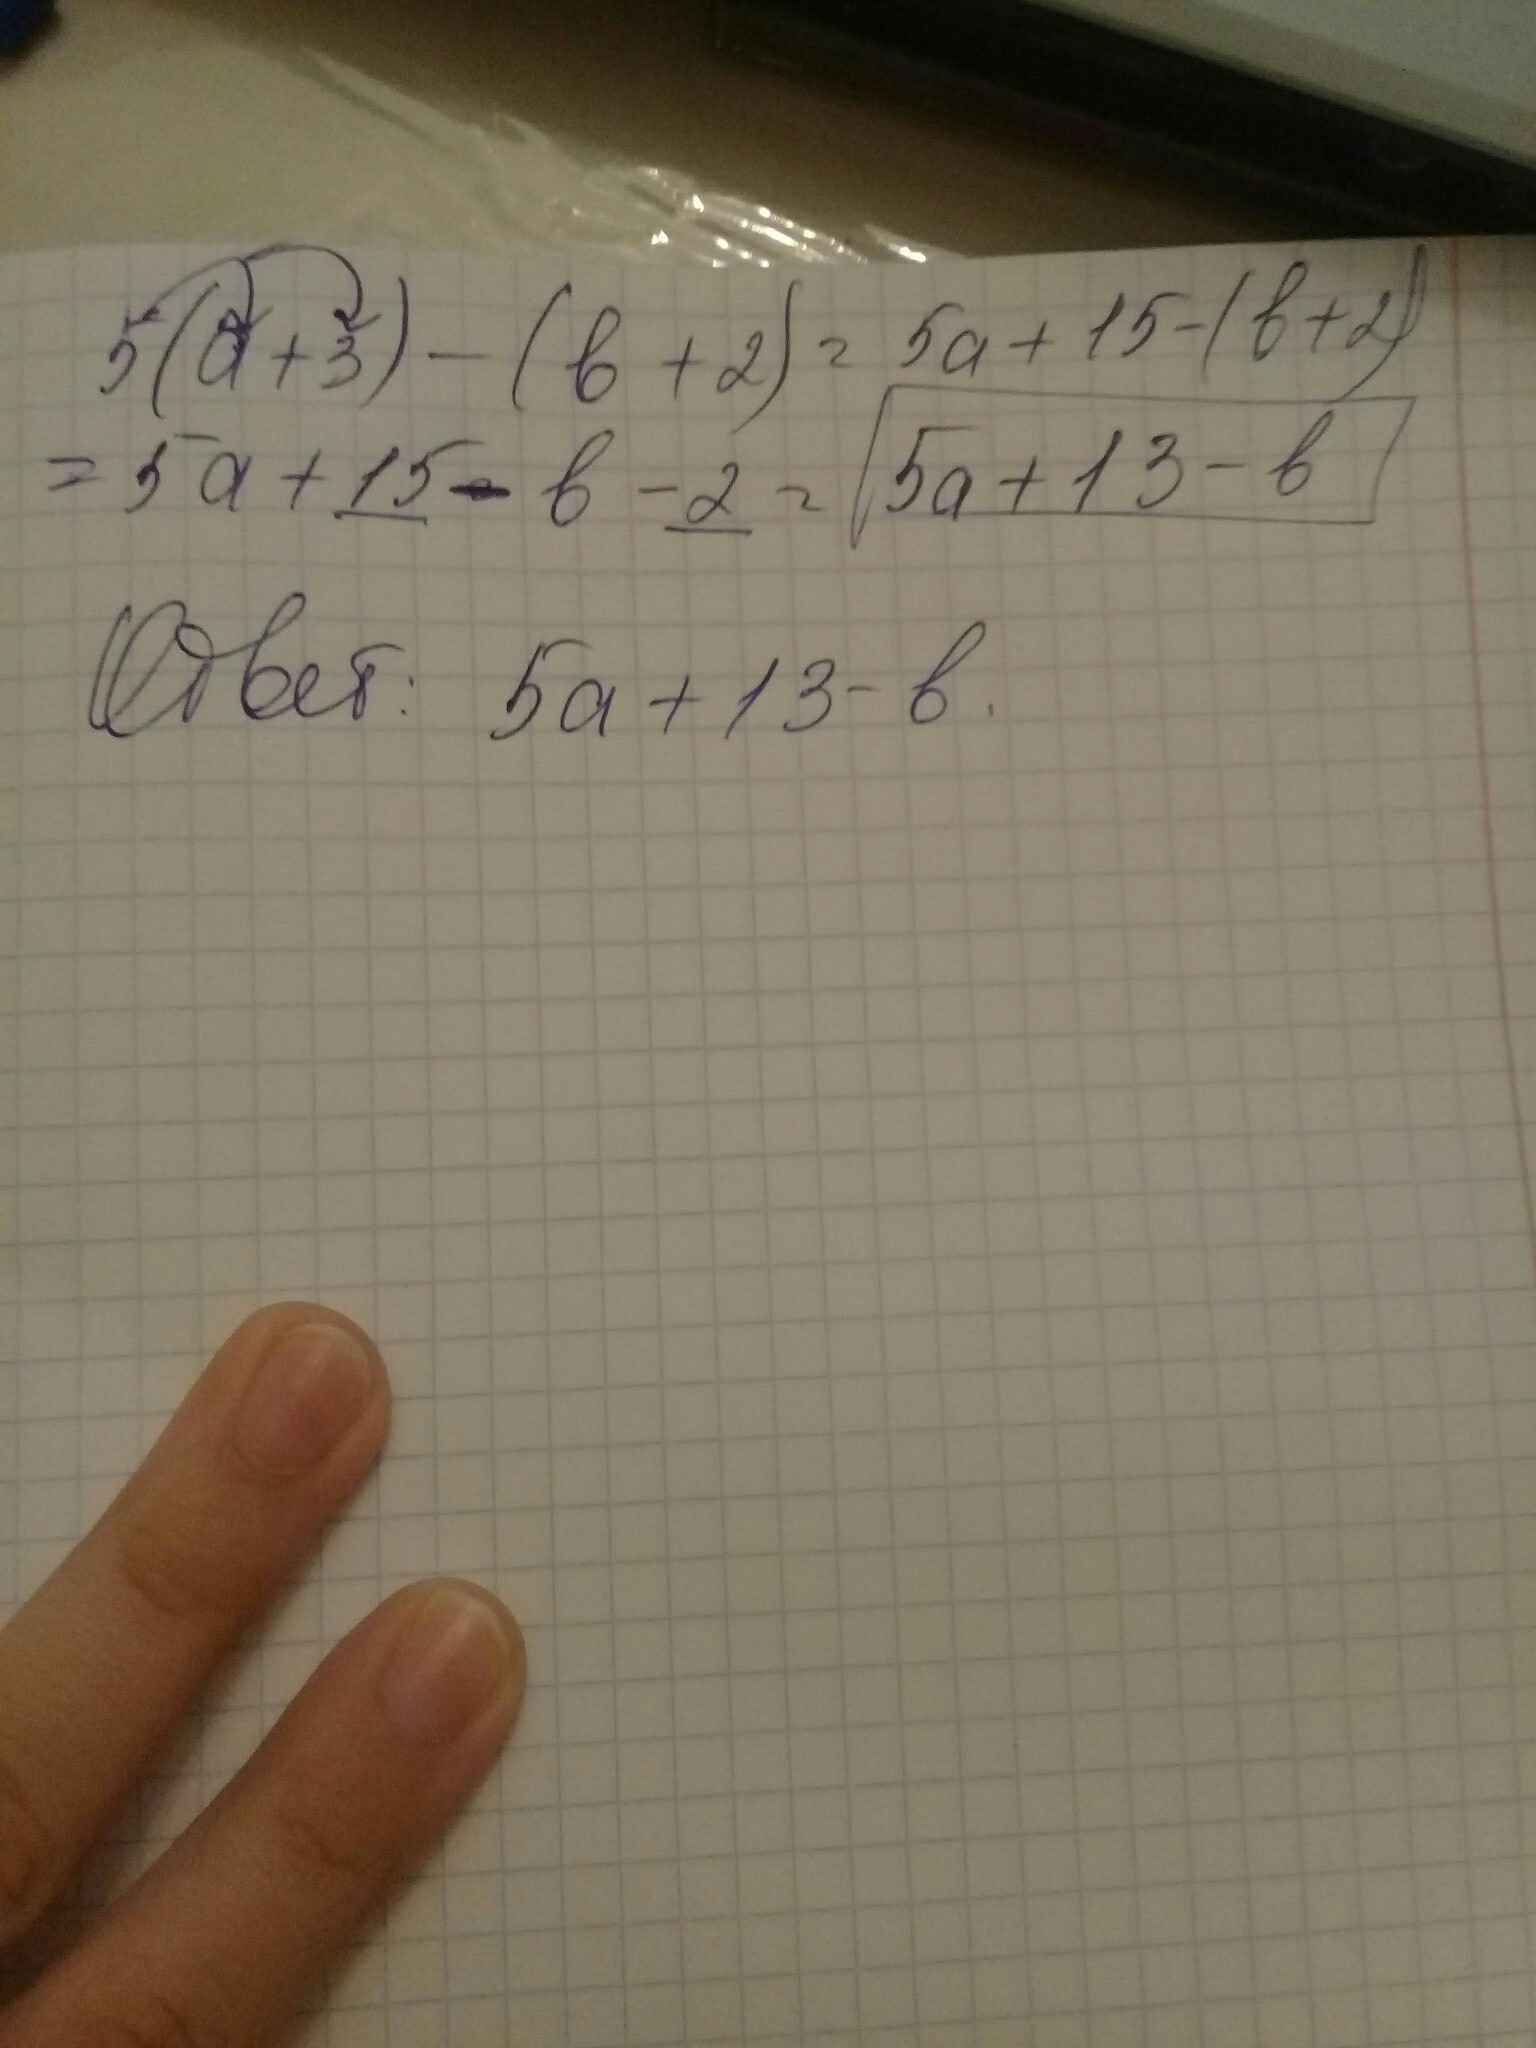 5(a+3)-(b+2)=5a+15-(b+2)
=5a+15-b-2=5a+13-b
Ответ: 5a+13-b.